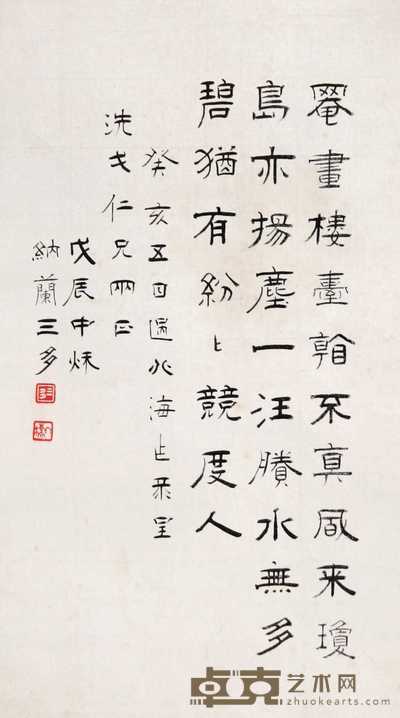 罨畫樓臺看不真風来瓊
島亦揚塵一汪賸水無多
碧猶有紛〻競度人
癸亥五日過北海呈
洗戈仁兄兩正
戊辰中秌
納蘭三多
卓克艺术网
zhuokearts.com